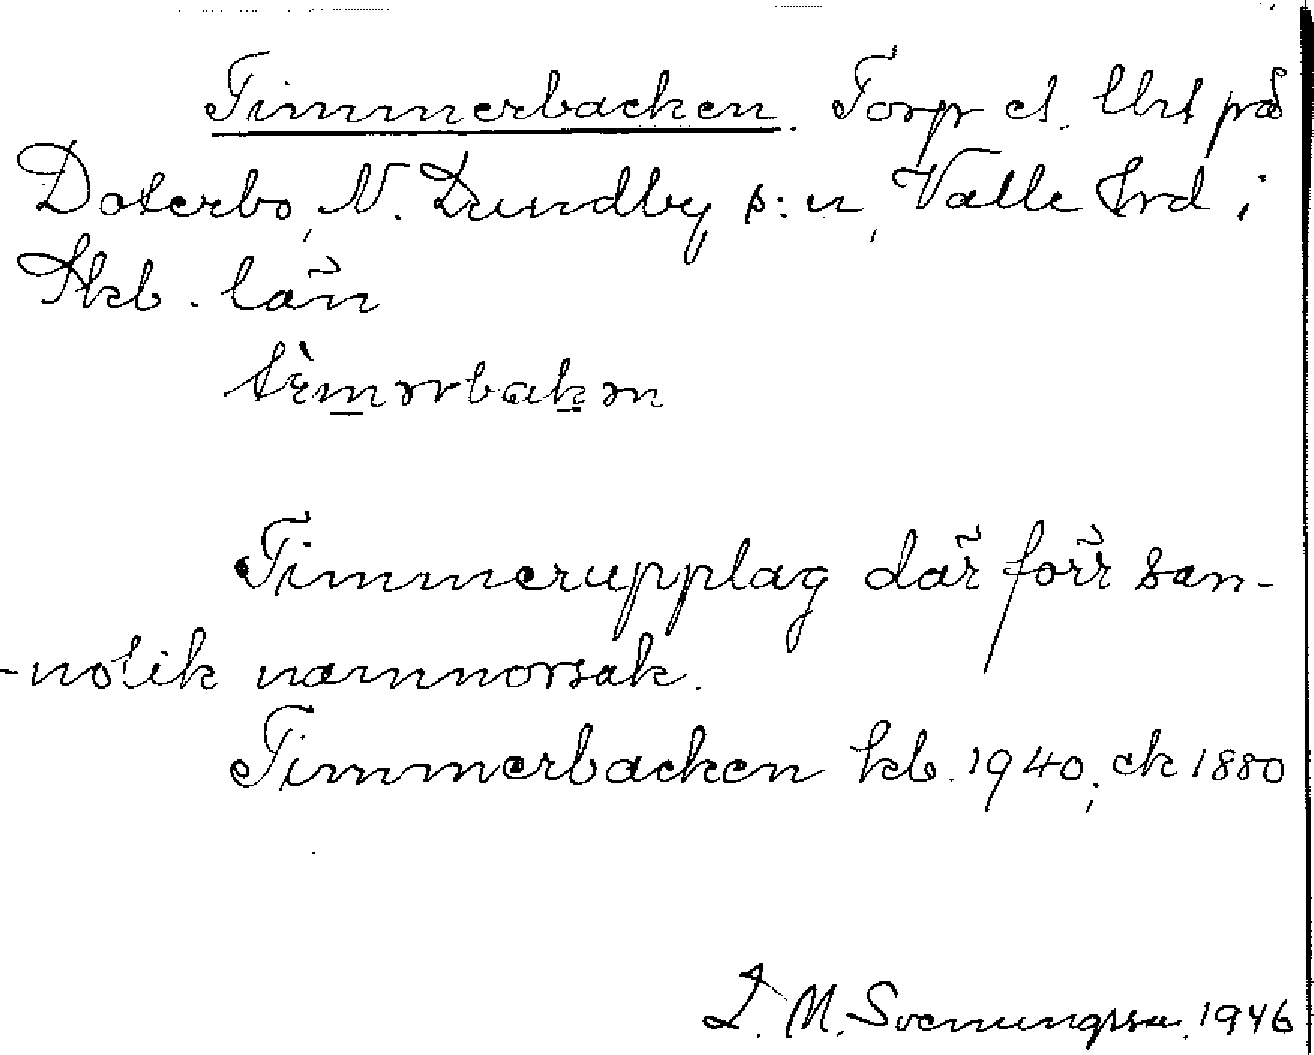 Timmerbacken. Torp el. lht på
Doterbo, N. Lundby s:n, Valle hrd i
Skb. län
Timmerupplag där förr san-
-nolik namnorsak.
Timmerbacken kb. 1940, ek 1880
L. M. Svenungsson 1946